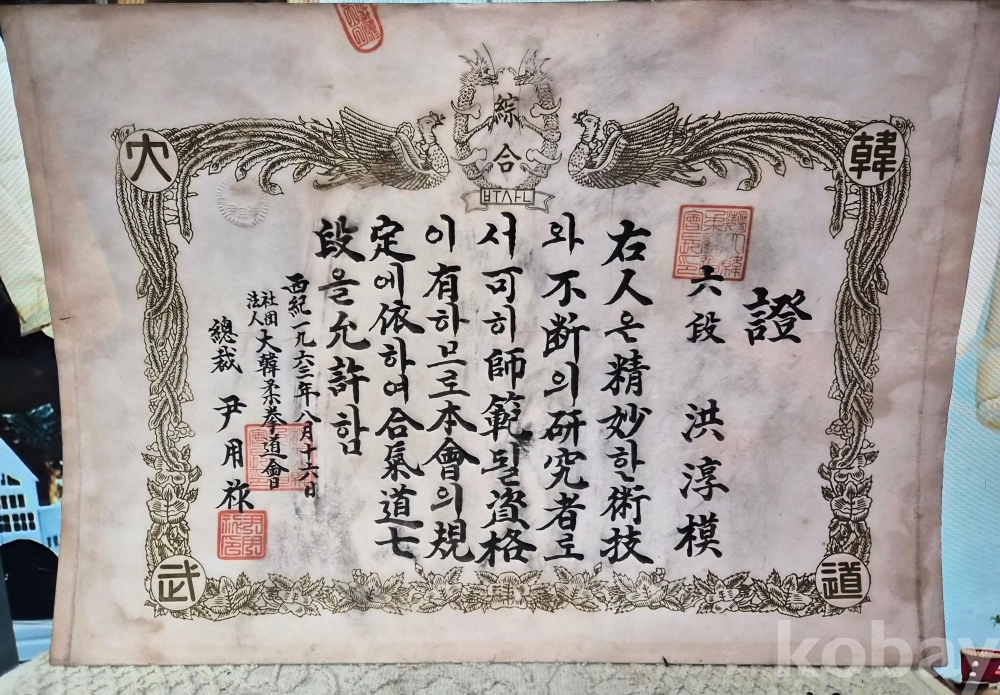 綜合
大韓
武道
證
六段 洪淳模
右人은精妙한術技
와不断의研究者로
서可히師範될資格
이有하므로本會의規
定에依하여合氣道七
段을允許함
西紀一九六三年八月十六日
社団法人大韓柔拳道會
總裁 尹用
kobay